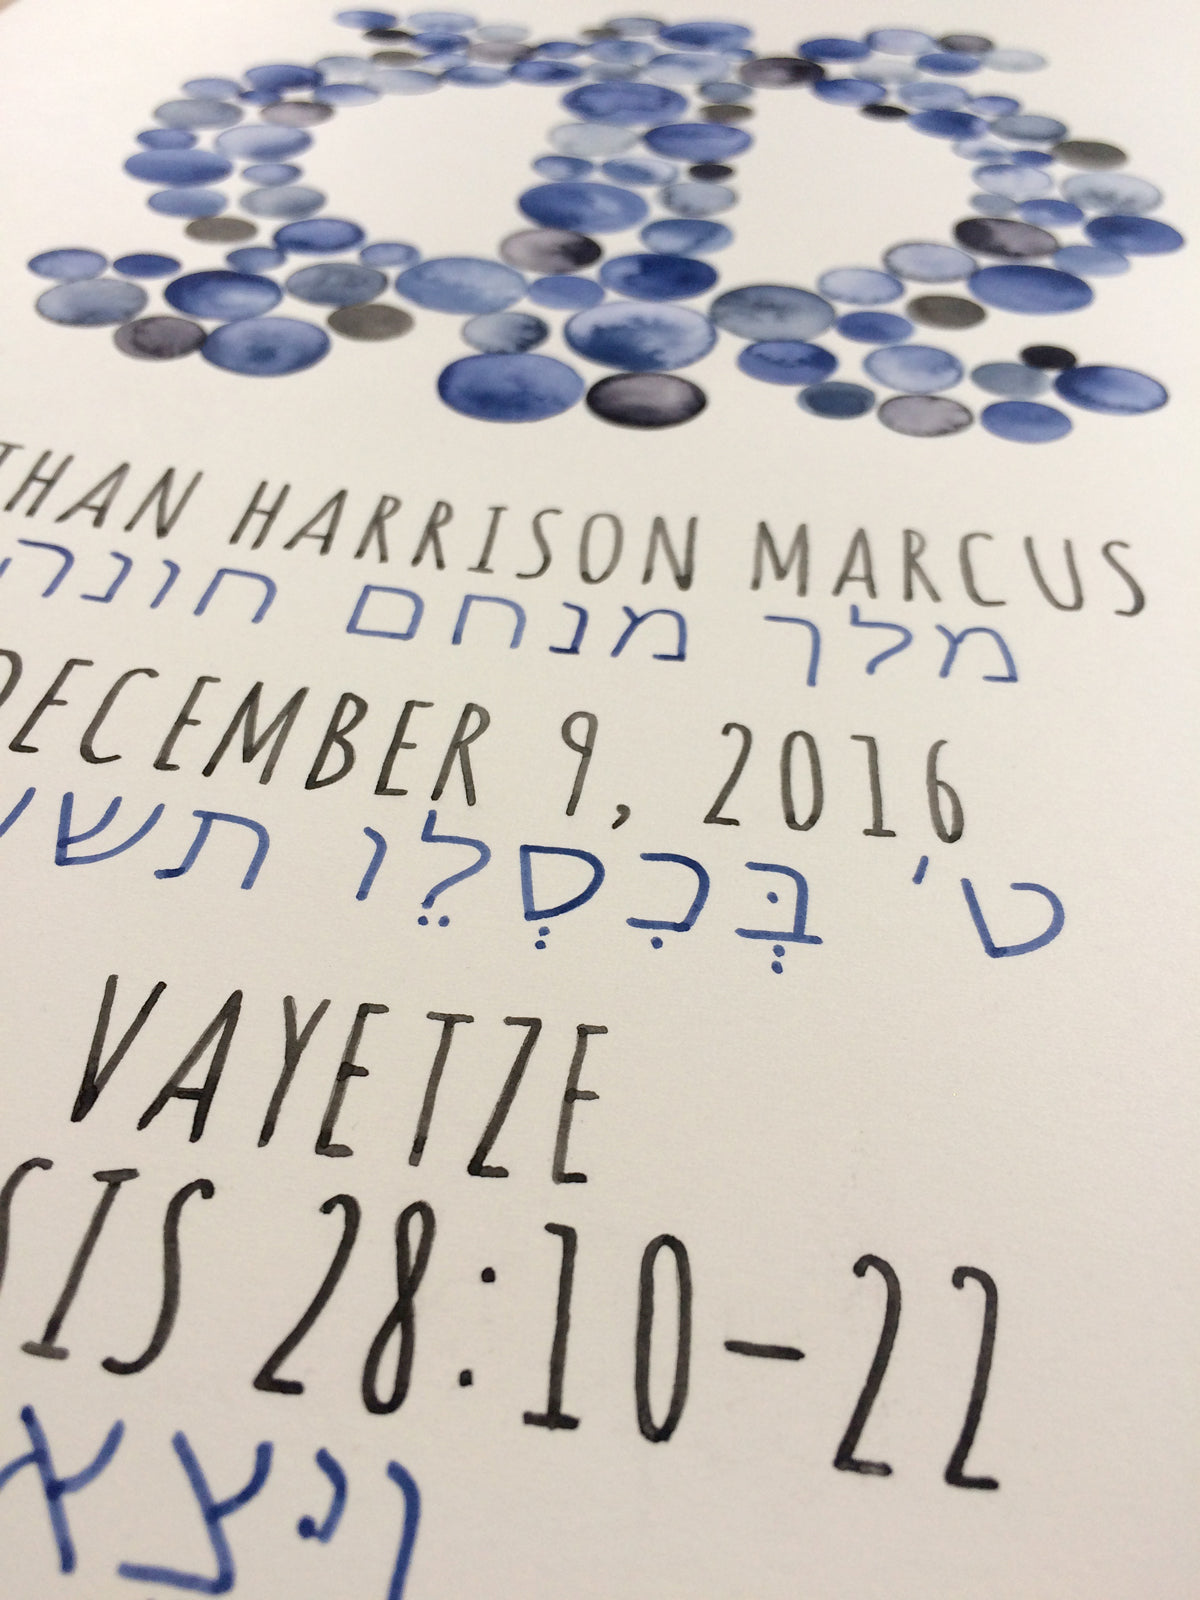 THAN HARRISON MARCUS
מלך מנחם חונה
DECEMBER 9, 2016
ט' בְּכִסְלֵו
VAYETZE
SIS 28:10-22
ויצא